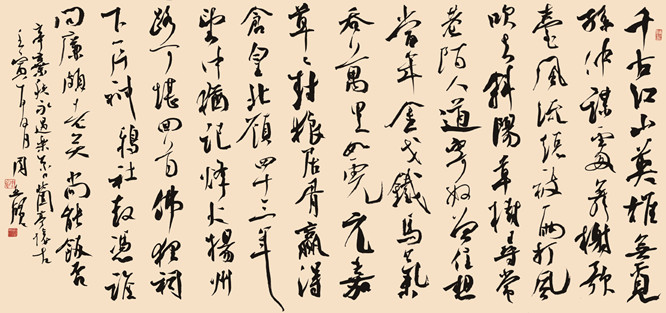 千古江山英雄無覓
孫仲謀處舞榭歌
臺風流總被雨打風
吹去斜陽草樹尋常
巷陌人道寄奴曾住想
當年金戈鐵馬氣
吞萬里如虎元嘉
草草封狼居胥贏得
倉皇北顧四十三年
望中猶記烽火揚州
路可堪回首佛狸祠
下一片神鴉社鼓憑誰
問廉頗老矣尚能飯否
辛棄疾永遇樂京口北固亭懷古
壬寅 月周